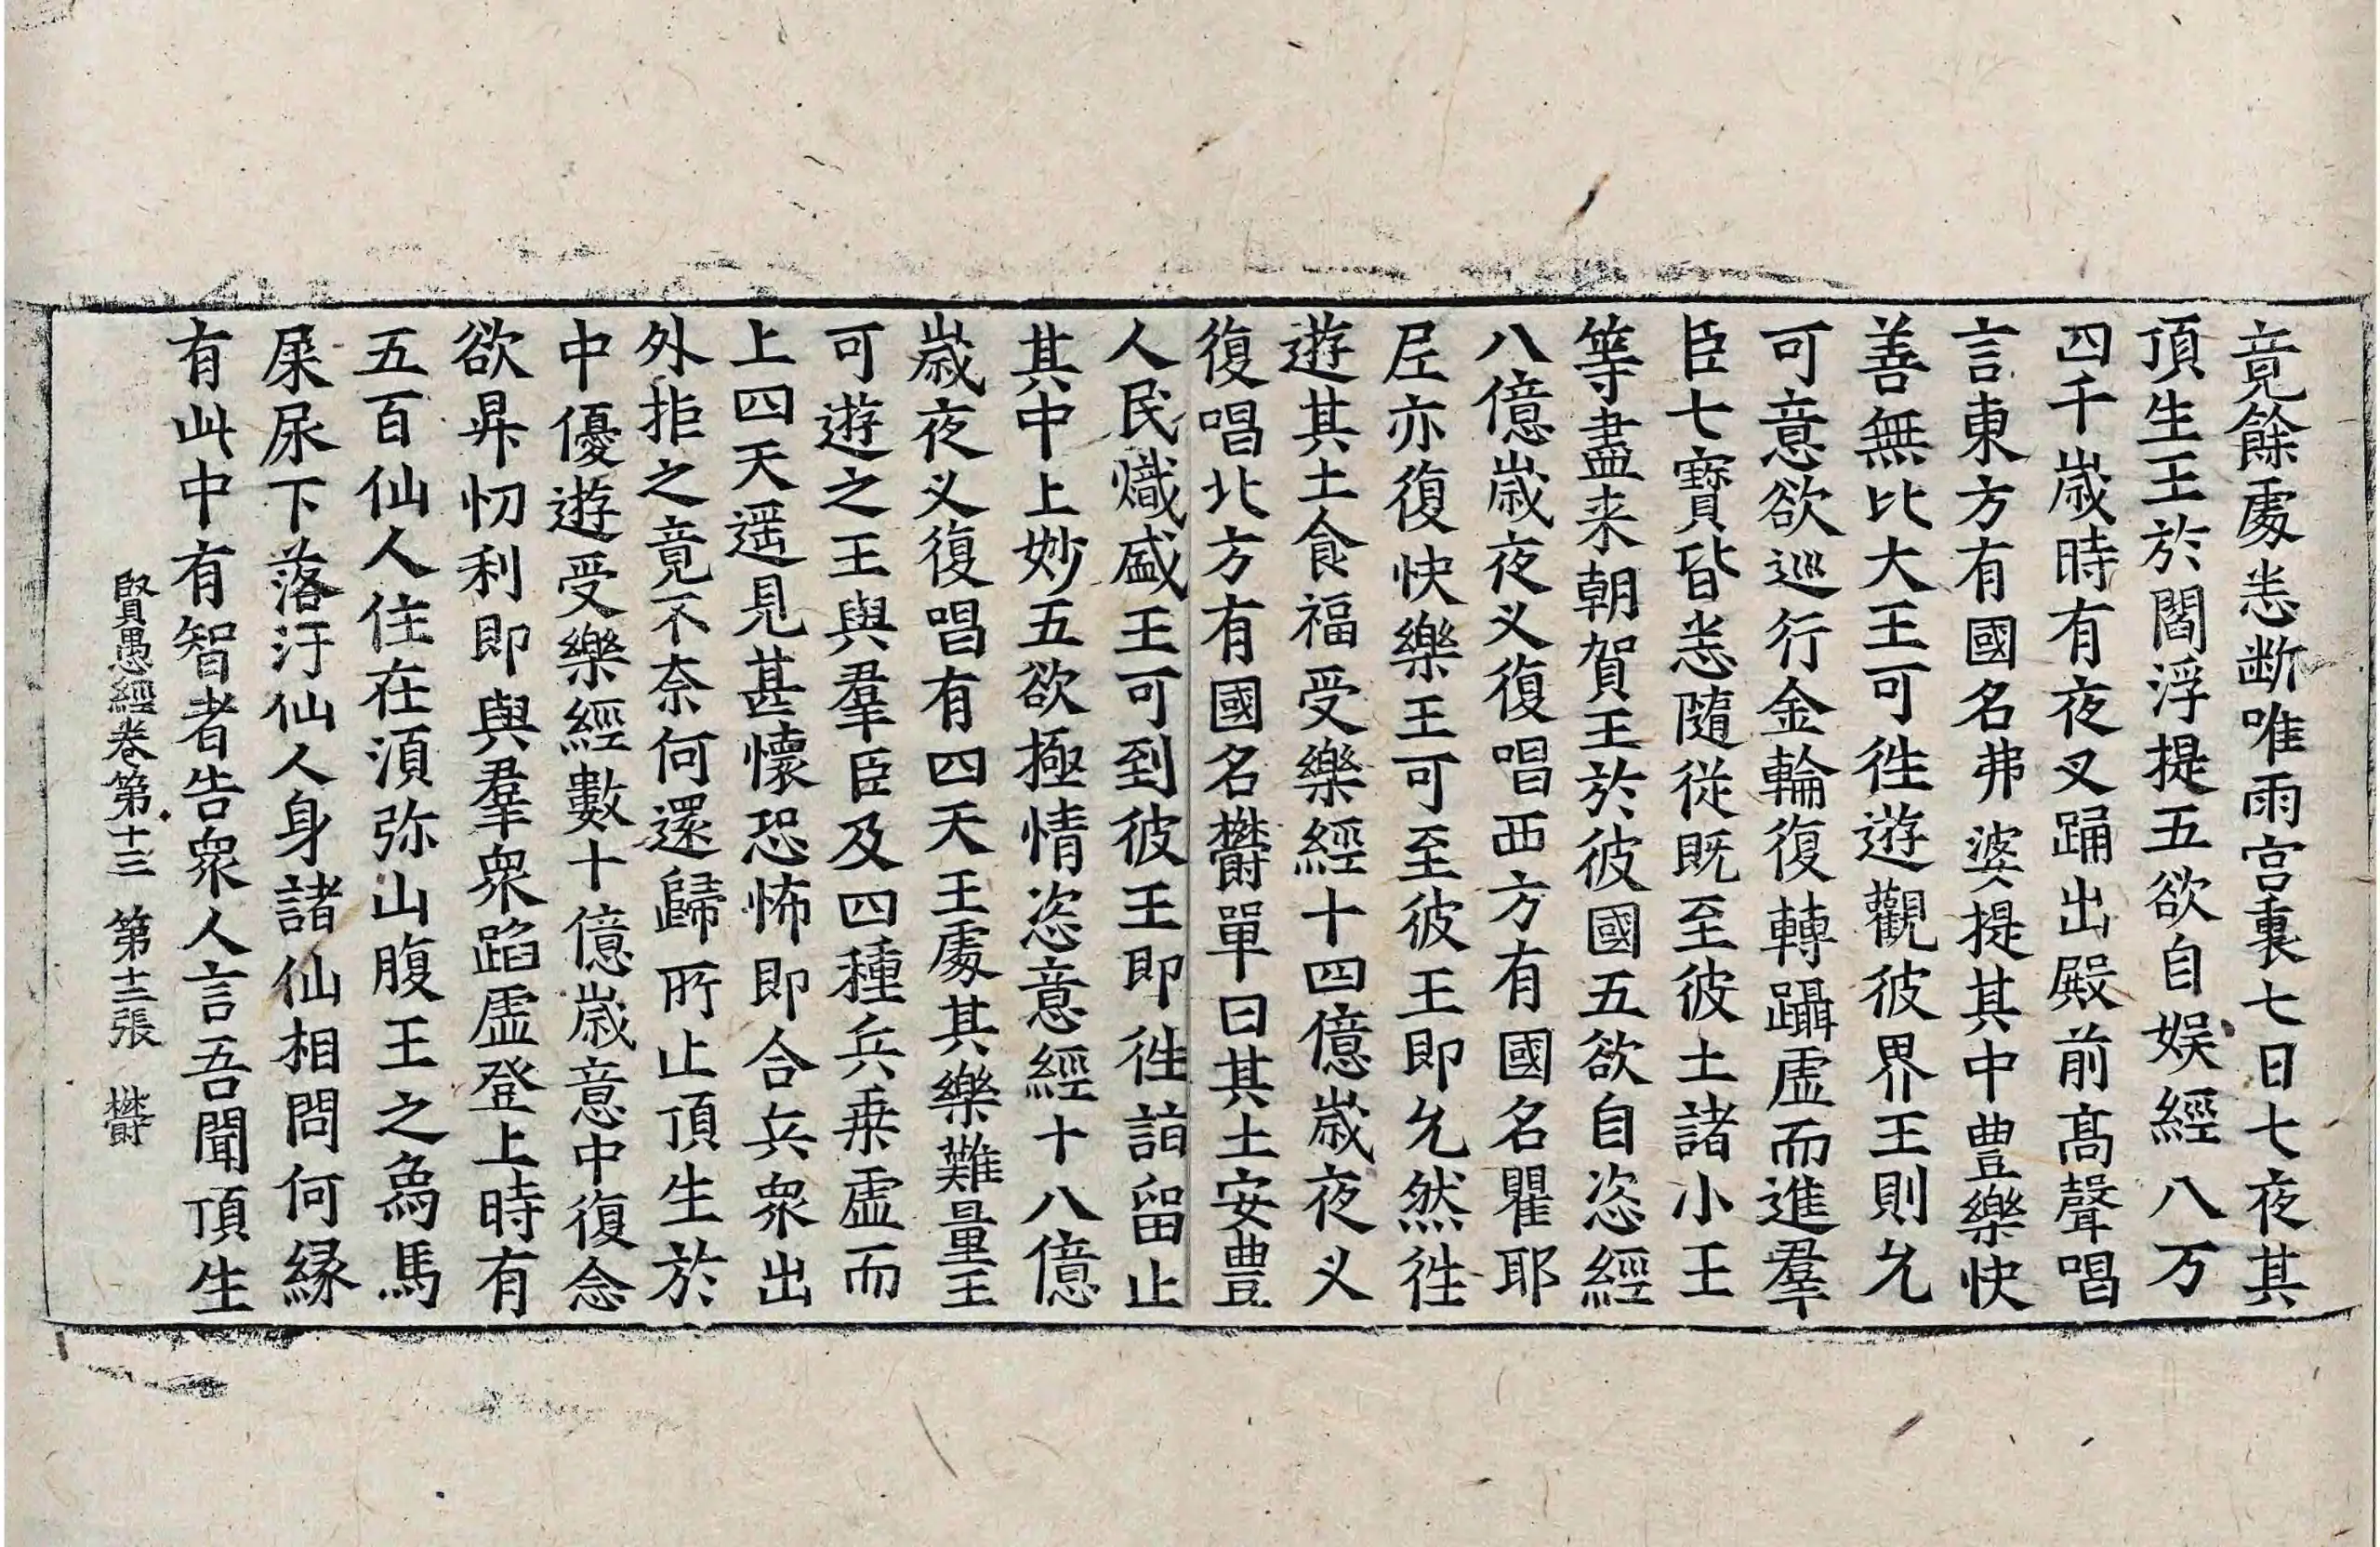 竟餘處悉断唯雨宫裏七日七夜其
頂生王於閻浮提五欲自娛經八万
四千歲時有夜叉踊出殿前髙聲唱
言東方有國名弗婆提其中豊樂快
善無比大王可徃遊觀彼界王則允
可意欲巡行金輪復轉躡虛而進羣
臣七寶皆悉隨從既至彼土諸小王
等盡来朝賀王於彼國五欲自恣經
八億歲夜叉復唱西方有國名瞿耶
尼亦復快樂王可至彼王即允然徃
遊其土食福受樂經十四億歲夜叉
復唱北方有國名欝單曰其土安豊
人民熾盛王可到彼王即徃詣留止
其中上妙五欲極情恣意經十八億
歲夜叉復唱有四天王處其樂難量王
可遊之王與羣臣及四種兵乗虛而
上四天遥見甚懷恐怖即合兵衆出
外拒之竟不奈何還歸所止頂生於
中優遊受樂經數十億歲意中復念
欲昇忉利即與羣衆蹈虛登上時有
五百仙人住在湏弥山腹王之為馬
屎尿下落汙仙人身諸仙相問何緣
有此中有智者告衆人言吾聞頂生
賢愚經卷第十三　第十二張　欝